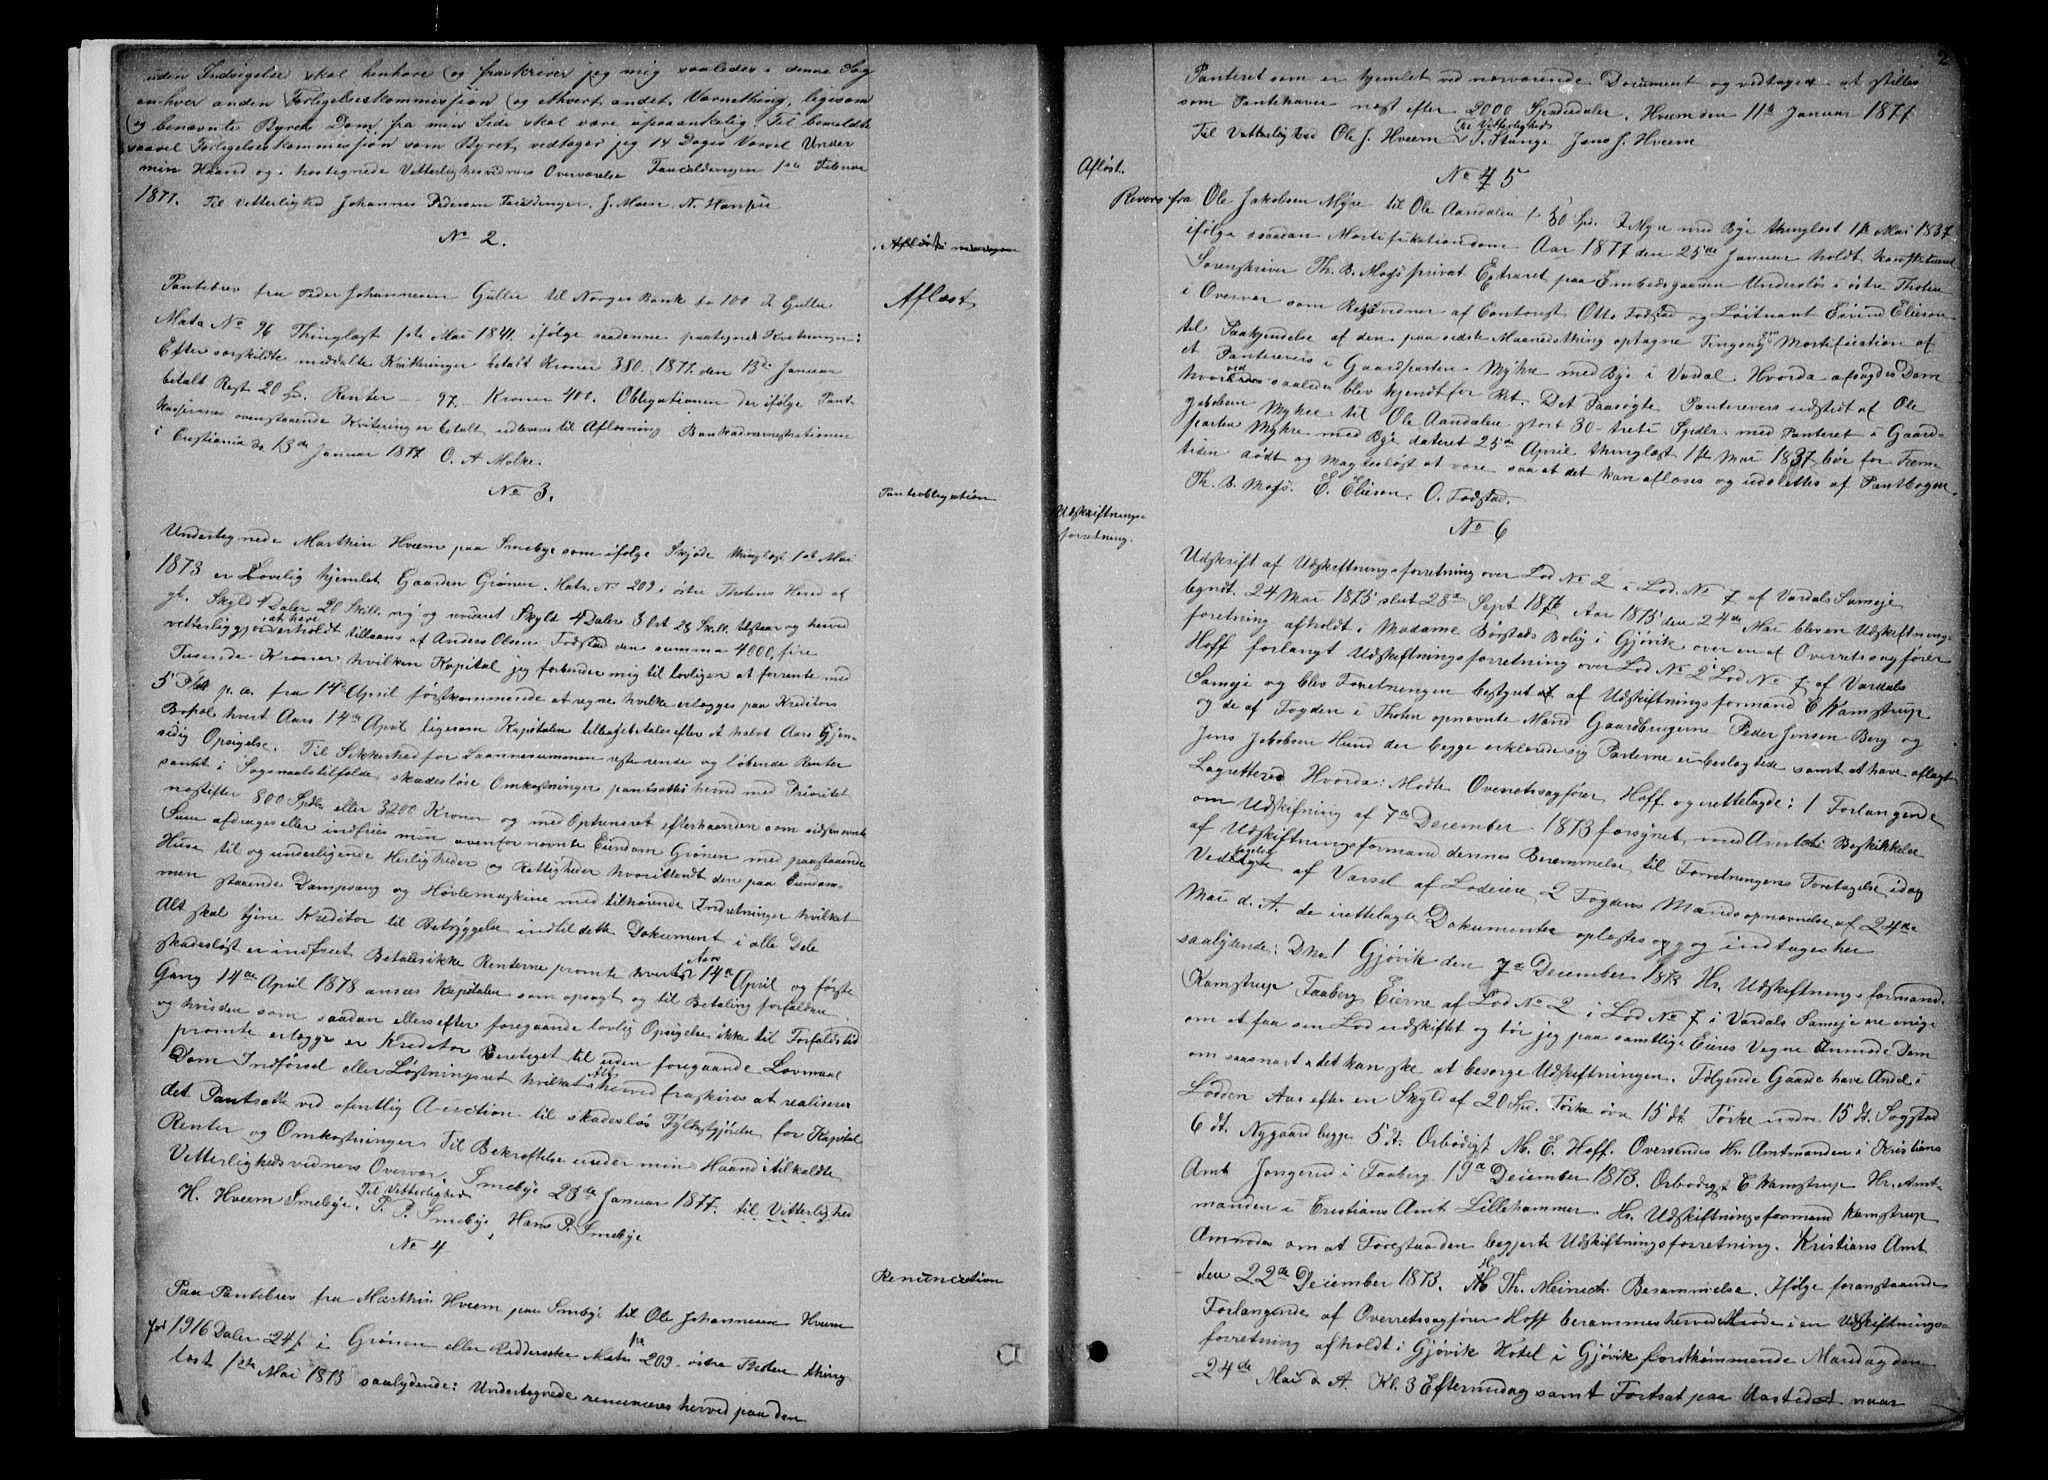 uden Indsigelse skal henhøre og fraskriver jeg mig saaledes i denne Sag
enhver anden Forligelseskommission og ethvert andet Værnething, ligesom
og benævnte Byrets Dom fra min Side skal være upaaankelig. Til bemeldte
saavel Forligelseskommission som Byret, vedtager jeg 14 Dages Varsel. Under
min Haand og hostegnede Vitterlighedsvidners Overværelse 1ste Februar
1877. Til Vitterlighed Johannes Pedersen J. Moen N. Hansen
No 2.
Afløst
Pantebrev fra Peder Johannesen Gullie til Norges Bank for 100 i Gullie
Matr No 96 Thinglæst 1ste Mai 1841 ifølge saadenne paategnede Kvitteringer:
Efter særskildte meddelte Kvitteringer betalt Kroner 380. 1877 den 13de Januar
betalt Rest 20 Renter — 97 — Kroner 400. Obligationen der ifølge Pant-
kassernes ovenstaaende Kvitering er betalt udleveres til Aflæsning Bankadministrationen
i Cristiania den 13de Januar 1877 O. A Molke.
No 3.
Panteobligation
Undertegnede Marthin Hveem paa Smebye som ifølge Skjøde thinglæst 1ste Mai
1873 er Lovelig hjemlet Gaarden Grønen Matr. No 209 i østre Thotens Hered af
gl. Skyld 4 Daler 20 Skill. ny og revideret Skyld 4 Daler 3 Ort 23 Skill. tilstaar og herved
vitterliggjør at have erholdt tillaans af Anders Olsen Fodstad den summa 4000, fire
Tusende Kroner hvilken Kapital jeg forbinder mig til lovligen at forrente med
5 Pct p. a. fra 14de April førstkommende at regne hvilke erlægges paa Kreditors
Bopæl hvert Aars 14de April ligesom Kapitalen tilbagebetales efter et halvt Aars Gjen-
sidig Opsigelse. Til Sikkerhed for Laanesummen resterende og løbende Renter
samt i Søgsmaalstilfælde skadesløse Omkostninger pantsættes herved med Prioritet
næstefter 800 Spdlr eller 3200 Kroner og med Optrinsret efterhaanden som sidstnævnte
Sum afdrages eller indfries min ovenfornævnte Eiendom Grønen med paastaaende
Huse til og underliggende Herligheder og Rettigheder hvoriblandt den paa Eiendom-
men staaende Dampsaug og Høvlemaskine med tilhørende Indretninger hvilket
Alt skal tjene Kreditor til Betryggelse indtil dette Dokument i alle Dele
skadesløst er indfriet. Betales ikke Renterne promte hvert Aars 14de April og første
Gang 14de April 1878 ansees Kapitalen som opsagt og til Betaling forfalden
og hvis den som saadan eller efter foregaaende lovlig Opsigelse ikke til Forfaldstid
promte erlægges er Kreditor Berettiget til uden foregaaende Lovmaal
Dom Indførsel eller Løsningsret hvilket Alt herved fraskrives at realisere
det Pantsatte ved offentlig Auction til skadesløs Fyldestgjørelse for Kapital
Renter og Omkostninger. Til Bekræftelse under min Haand i tilkaldte
Vitterlighedsvidners Overvær. Smebye 23de Januar 1877. til Vitterlighed
H. Hveem Smebye. Til Vitterlighed P. P. Smebye, Hans P. Smebye
No 4
Renunciation
Paa Pantebrev fra Marthin Hveem paa Smebye til Ole Johannesen Hveem
for 1916 Daler 24 i Grønen eller Matr 209 østre Thoten thing
læst 1ste Mai 1873 saalydende: Undertegnede renuncieres herved paa den
2
Panteret som er hjemlet ved nærværende Document og vedtages at stilles
som Pantehaver næst efter 2000 Speciedaler. Hveem den 11te Januar 1877
Til Vitterlighed Ole J. Hveem Til Vitterlighed P. Stange Jens J. Hveem
Afløst.
No 5
Revers fra Ole Jakobsen Myre til Ole Aandalen 30 Spd. i Myre med Bye thinglæst 1ste Mai 1837
ifølge saadan Mortifikationsdom Aar 1877 den 25de Januar holdt konstitueret
Sorenskriver Th. B. Moss privat Extraret paa Embedsgaarden Underslos i østre Thoten
i Overvær som Retsvidner af Contorist Otto Fodstad og Løitnant Eivind Elieson
til Paakjendelse af den paa sidste Maanedsthing optagne Tingssag om Mortification af
et Pantereverss i Gaardparten Myhre med Bye i Vardal. Hvorda afsagdes Dom
hvorved saaledes blev kjendt for Ret. Det Paasøgte Panterevers udstedt af Ole
Jakobsen Myhre til Ole Aandalen stort 30 treti Spdlr. med Panteret i Gaard-
parten Myhre med Bye dateret 25de April thinglæst 1ste Mai 1837 bør for Frem-
tiden dødt og magtesløst at være saa at det kan afløses og udslettes af Pantbogen.
Th. B. Moss. E. Elieson. O. Fodstad.
Udskiftnings-
forretning.
No 6
Udskrift af Udskiftningsforretning over Lod No 2 i Lod No 7 af Vardals Sameje
begndt 24 Mai 1875 slut 28de Sept 1876 Aar 1875 den 24de Mai blev en Udskiftnings-
foretning afholdt i Madame Børstads Bolig i Gjøvik over en af Overretssagfører
Hoff forlangt Udskiftningsforretning over Lod No 2 i Lod No 7 af Vardals
Sameje og blev Forretningen bestyret af Udskiftningsformand E Kamstrup
og de af Fogden i Thoten opnævnte Mænd Gaardbrugerne Peder Jensen Berg og
Jens Jakobsen Hund der begge erklærede sig Parterne ubeslægtede samt at have aflagt
Lagretteed Hvorda: Mødte Overretssagfører Hoff og rettelagde: 1 Forlangende
om Udskifning af 7de December 1873 forsynet med Amtets Beskikkelse
af Udskiftningsformand dennes Berammelse til Forretningens Foretagelse idag
Vedtagelse af Varsel af Lodeiere 2 Fogdens Mandsopnævnelse af 24de
Mai d. A. de irettelagte Dokumenter oplæstes og indtages her
saalydende: Dkm. 1 Gjøvik den 7de December 1873 Hr. Udskiftningsformand
Kamstrup Faaberg. Eierne af Lod No 2 i Lod No 7 i Vardals Sameje ere enige
om at faa sin Lod udskiftet og tør jeg paa samtlige Eieres Vegne Anmode Dem
om saasnart det kan ske at besorge Udskiftningen. Følgende Gaarde have Andel i
Lodden Aas efter en Skyld af 20 Spd. Tørke øvre 15 dt. Tørke nedre 15 dt. Sogstad
6 dt. Nygaard begge 5 dt. Ærbødigst M. E. Hoff. Oversendes Hr. Amtmanden i Kristians
Amt Jongerud i Faaberg 19de December 1873. Ærbødigst E Kamstrup Hr. Amt-
manden i Cristians Amt Lillehammer. Hr. Udskiftningsformand Kamstrup
Anmodes om at Forestaa den begjerte Udskiftningsforretning. Kristians Amt
den 22de December 1873. Th. Meinich. Berammelse. Ifølge foranstaaende
Forlangende af Overretssagfører Hoff berammes herved Møde i en Udskiftnings-
forretning afholdt i Gjøvik Hotel i Gjøvik førstkommende Mandag den
24de Mai d. A. Kl. 3 Eftermidag samt Fortsat paa Aastedet naar